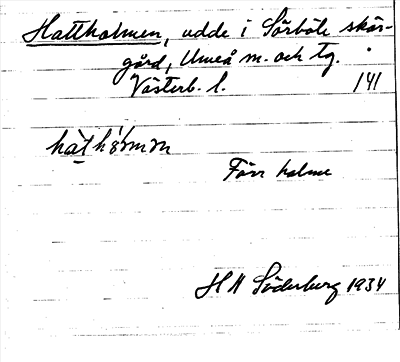 Hattholmen, udde i Sörböle skär-
gård, Umeå m. och tg.
Västerb. l. 141
Förr holme
H N Söderberg 1934